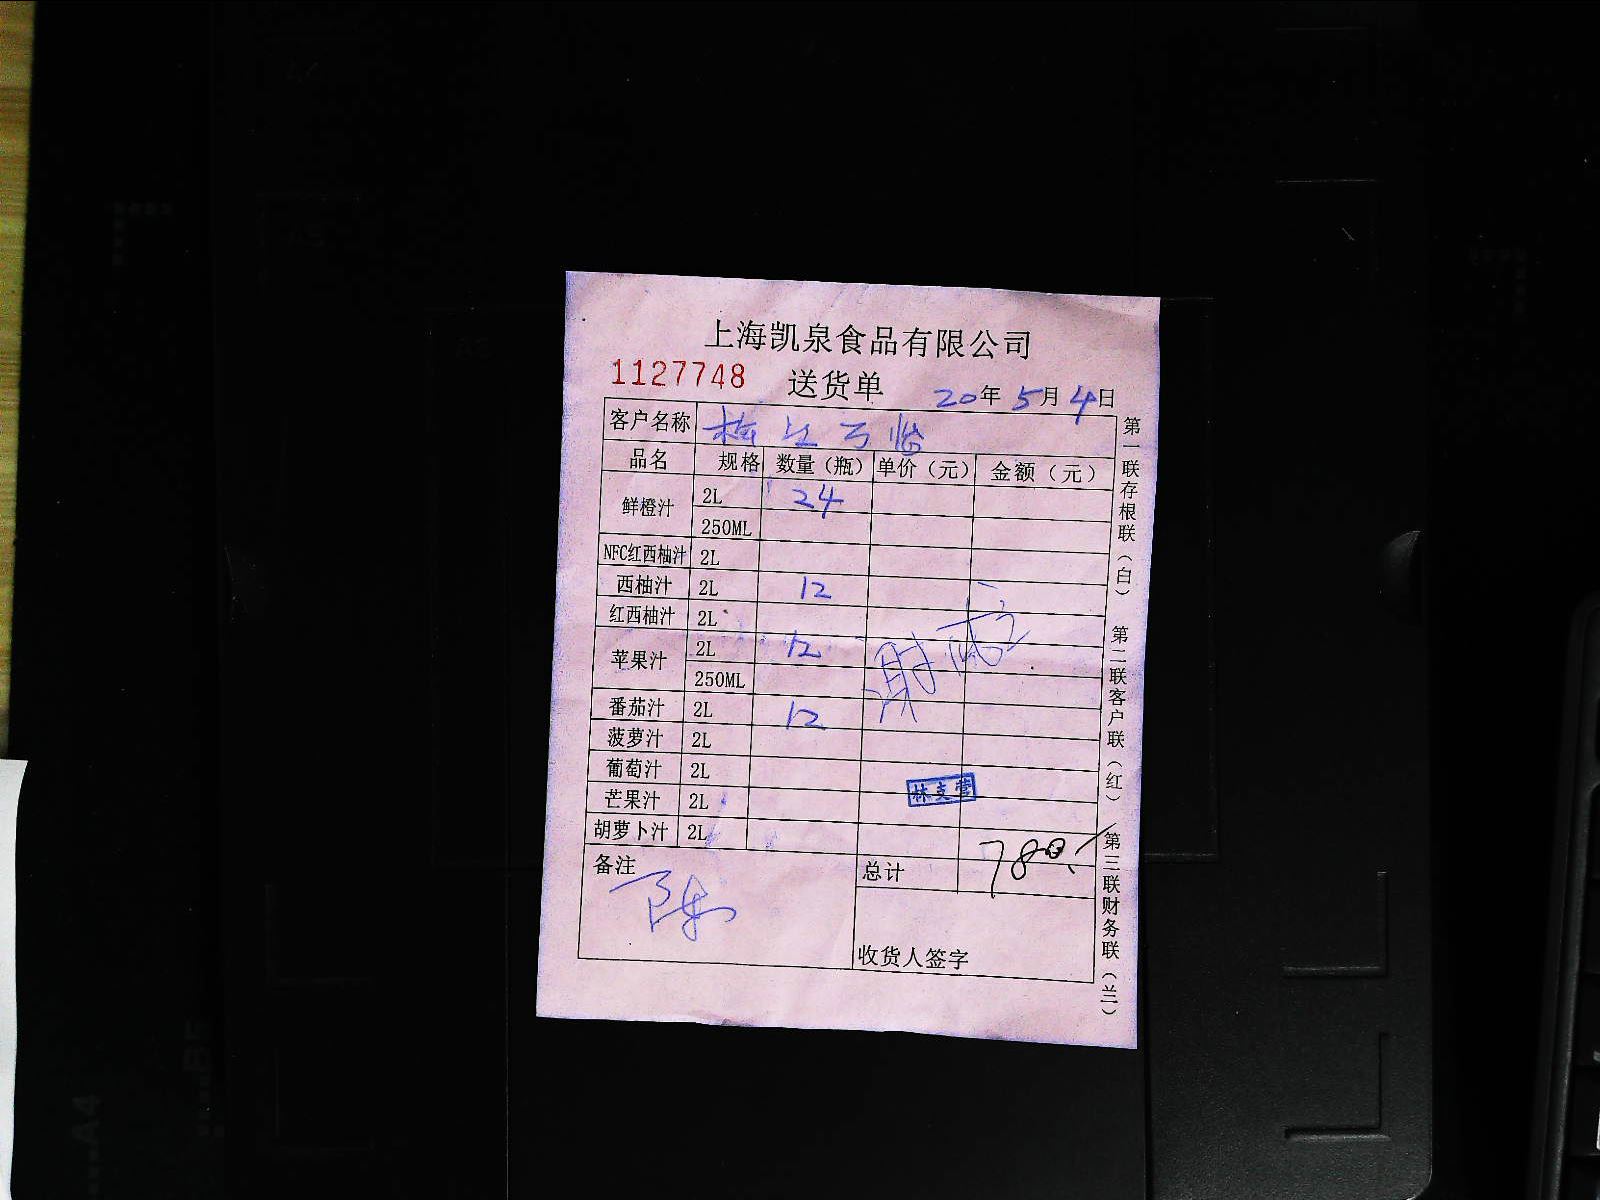 上海凯泉食品有限公司
1127748 送货单 20年5月4日
客户名称
品名 规格 数量（瓶） 单价（元） 金额（元）
鲜橙汁 2L 24
250ML
NFC红西柚汁 2L
西柚汁 2L 12
红西柚汁 2L
苹果汁 2L 12
250ML
番茄汁 2L 12
菠萝汁 2L
葡萄汁 2L
芒果汁 2L
胡萝卜汁 2L
林支营
备注 陈
总计 780.
收货人签字
第一联存根联（白） 第二联客户联（红） 第三联财务联（兰）
A4